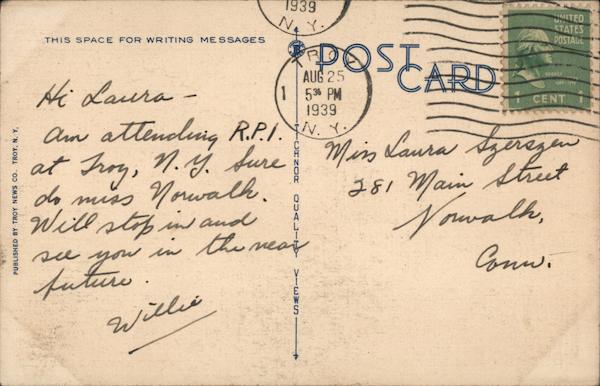 1939
N.Y.
THIS SPACE FOR WRITING MESSAGES
POST CARD
UNITED
STATES
POSTAGE
1 CENT 1
TROY
AUG 25
1 5 30 PM
1939
N.Y.
Hi Laura –
Am attending R.P.I.
at Troy, N.Y. Sure
do miss Norwalk.
Will stop in and
see you in the near
future.
Willie
Miss Laura Szerszen
281 Main Street
Norwalk,
Conn.
PUBLISHED BY TROY NEWS CO. TROY, N. Y.
TICHNOR QUALITY VIEWS